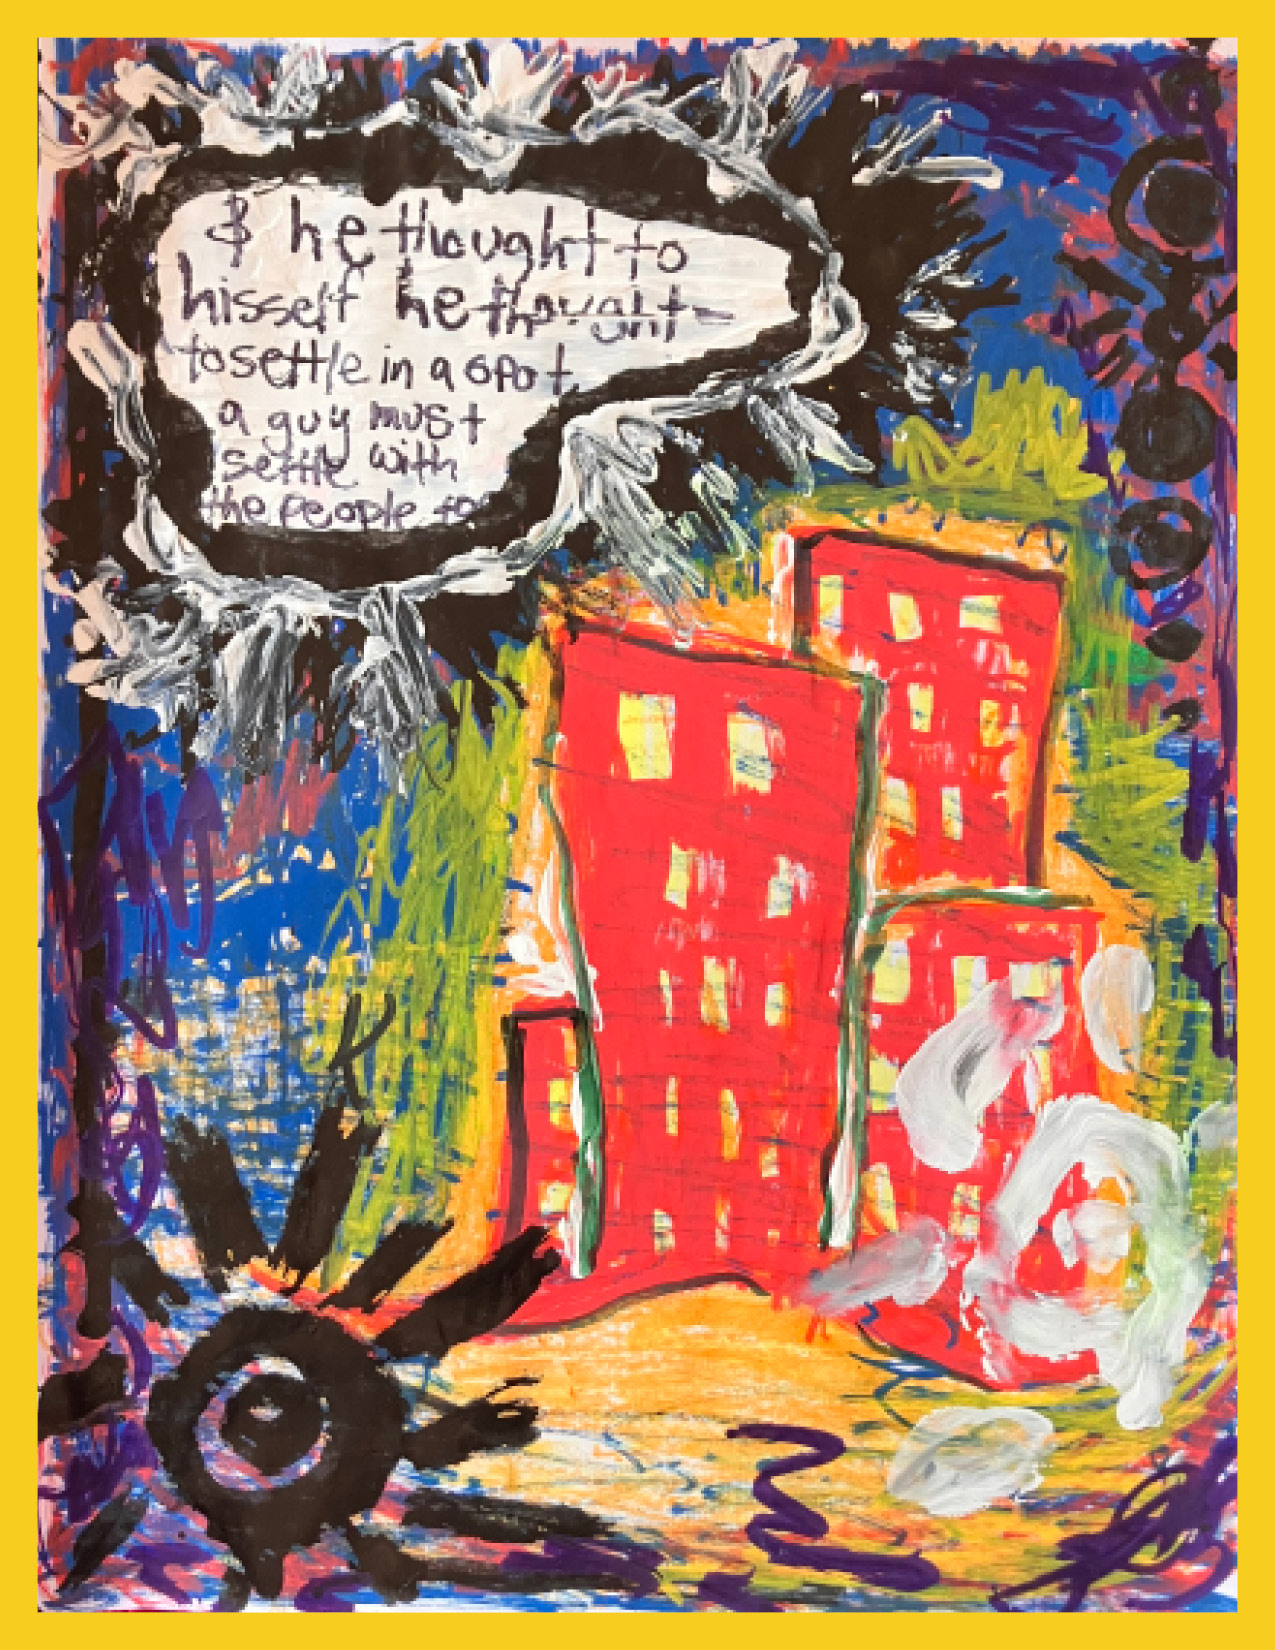 & he thought to
hisself he thought-
to settle in a spot
a guy must
settle with
the people too